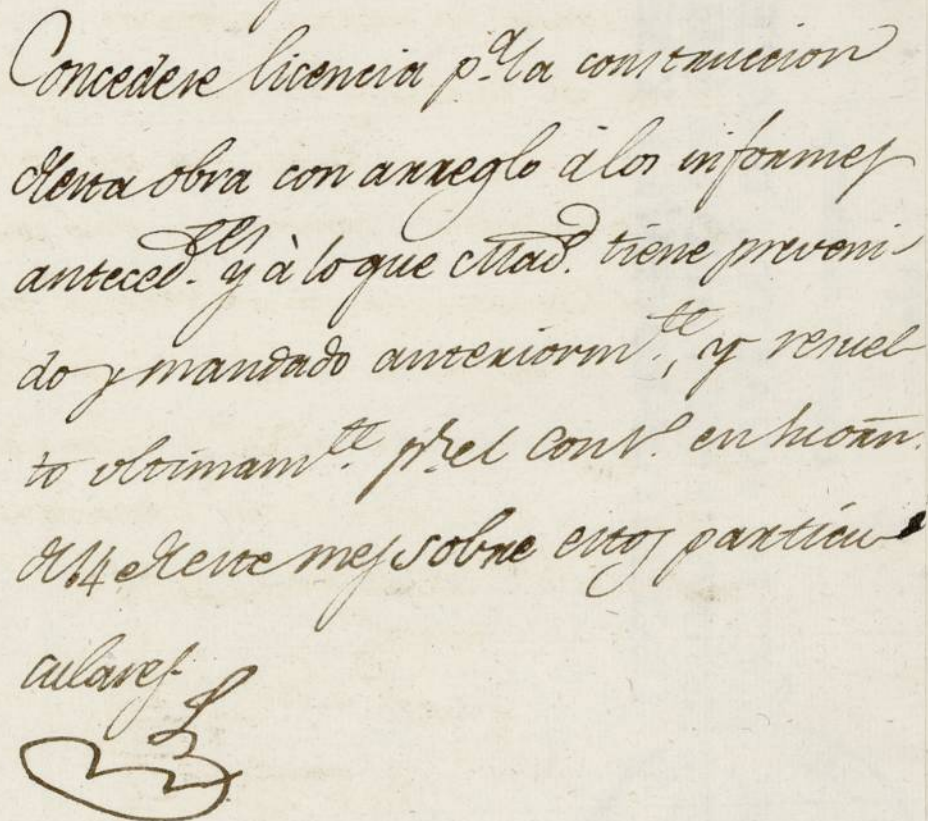 Concedese licencia p.ª la construccion
de esta obra con arreglo à los informes
anteced.tes y à lo que Mad.d tiene preveni-
do y mandado anteriorm.te, y resuel-
to vltimam.te p.r el Cons.º en su orñ.
de 14 de este mes sobre estos particu-
culares.